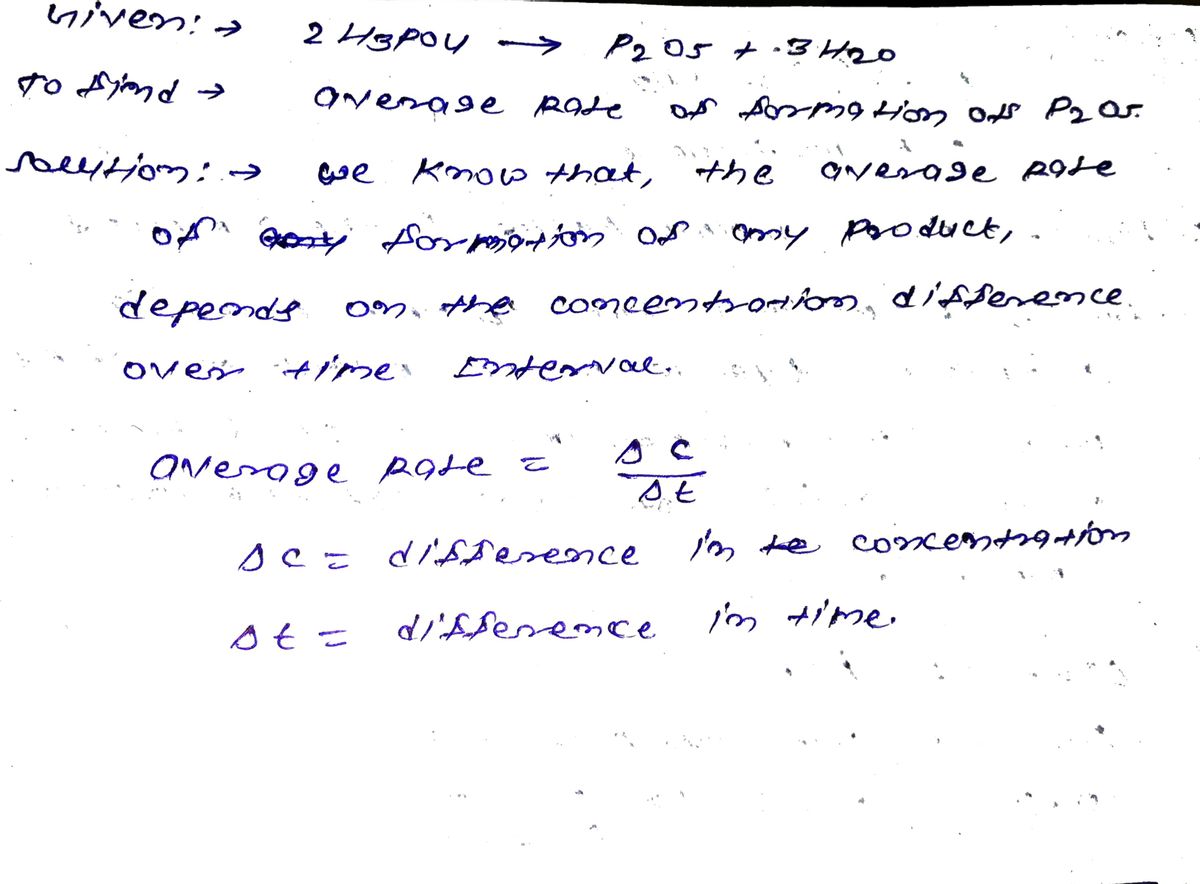 Given: → 2 H3PO4 → P2O5 + 3H2O
To find → average Rate of formation of P2O5.
Solution: → we know that, the average Rate
of formation of any product,
depends on the concentration difference
over time Interval.
average Rate = ΔC / Δt
ΔC = difference in concentration
Δt = difference in time.